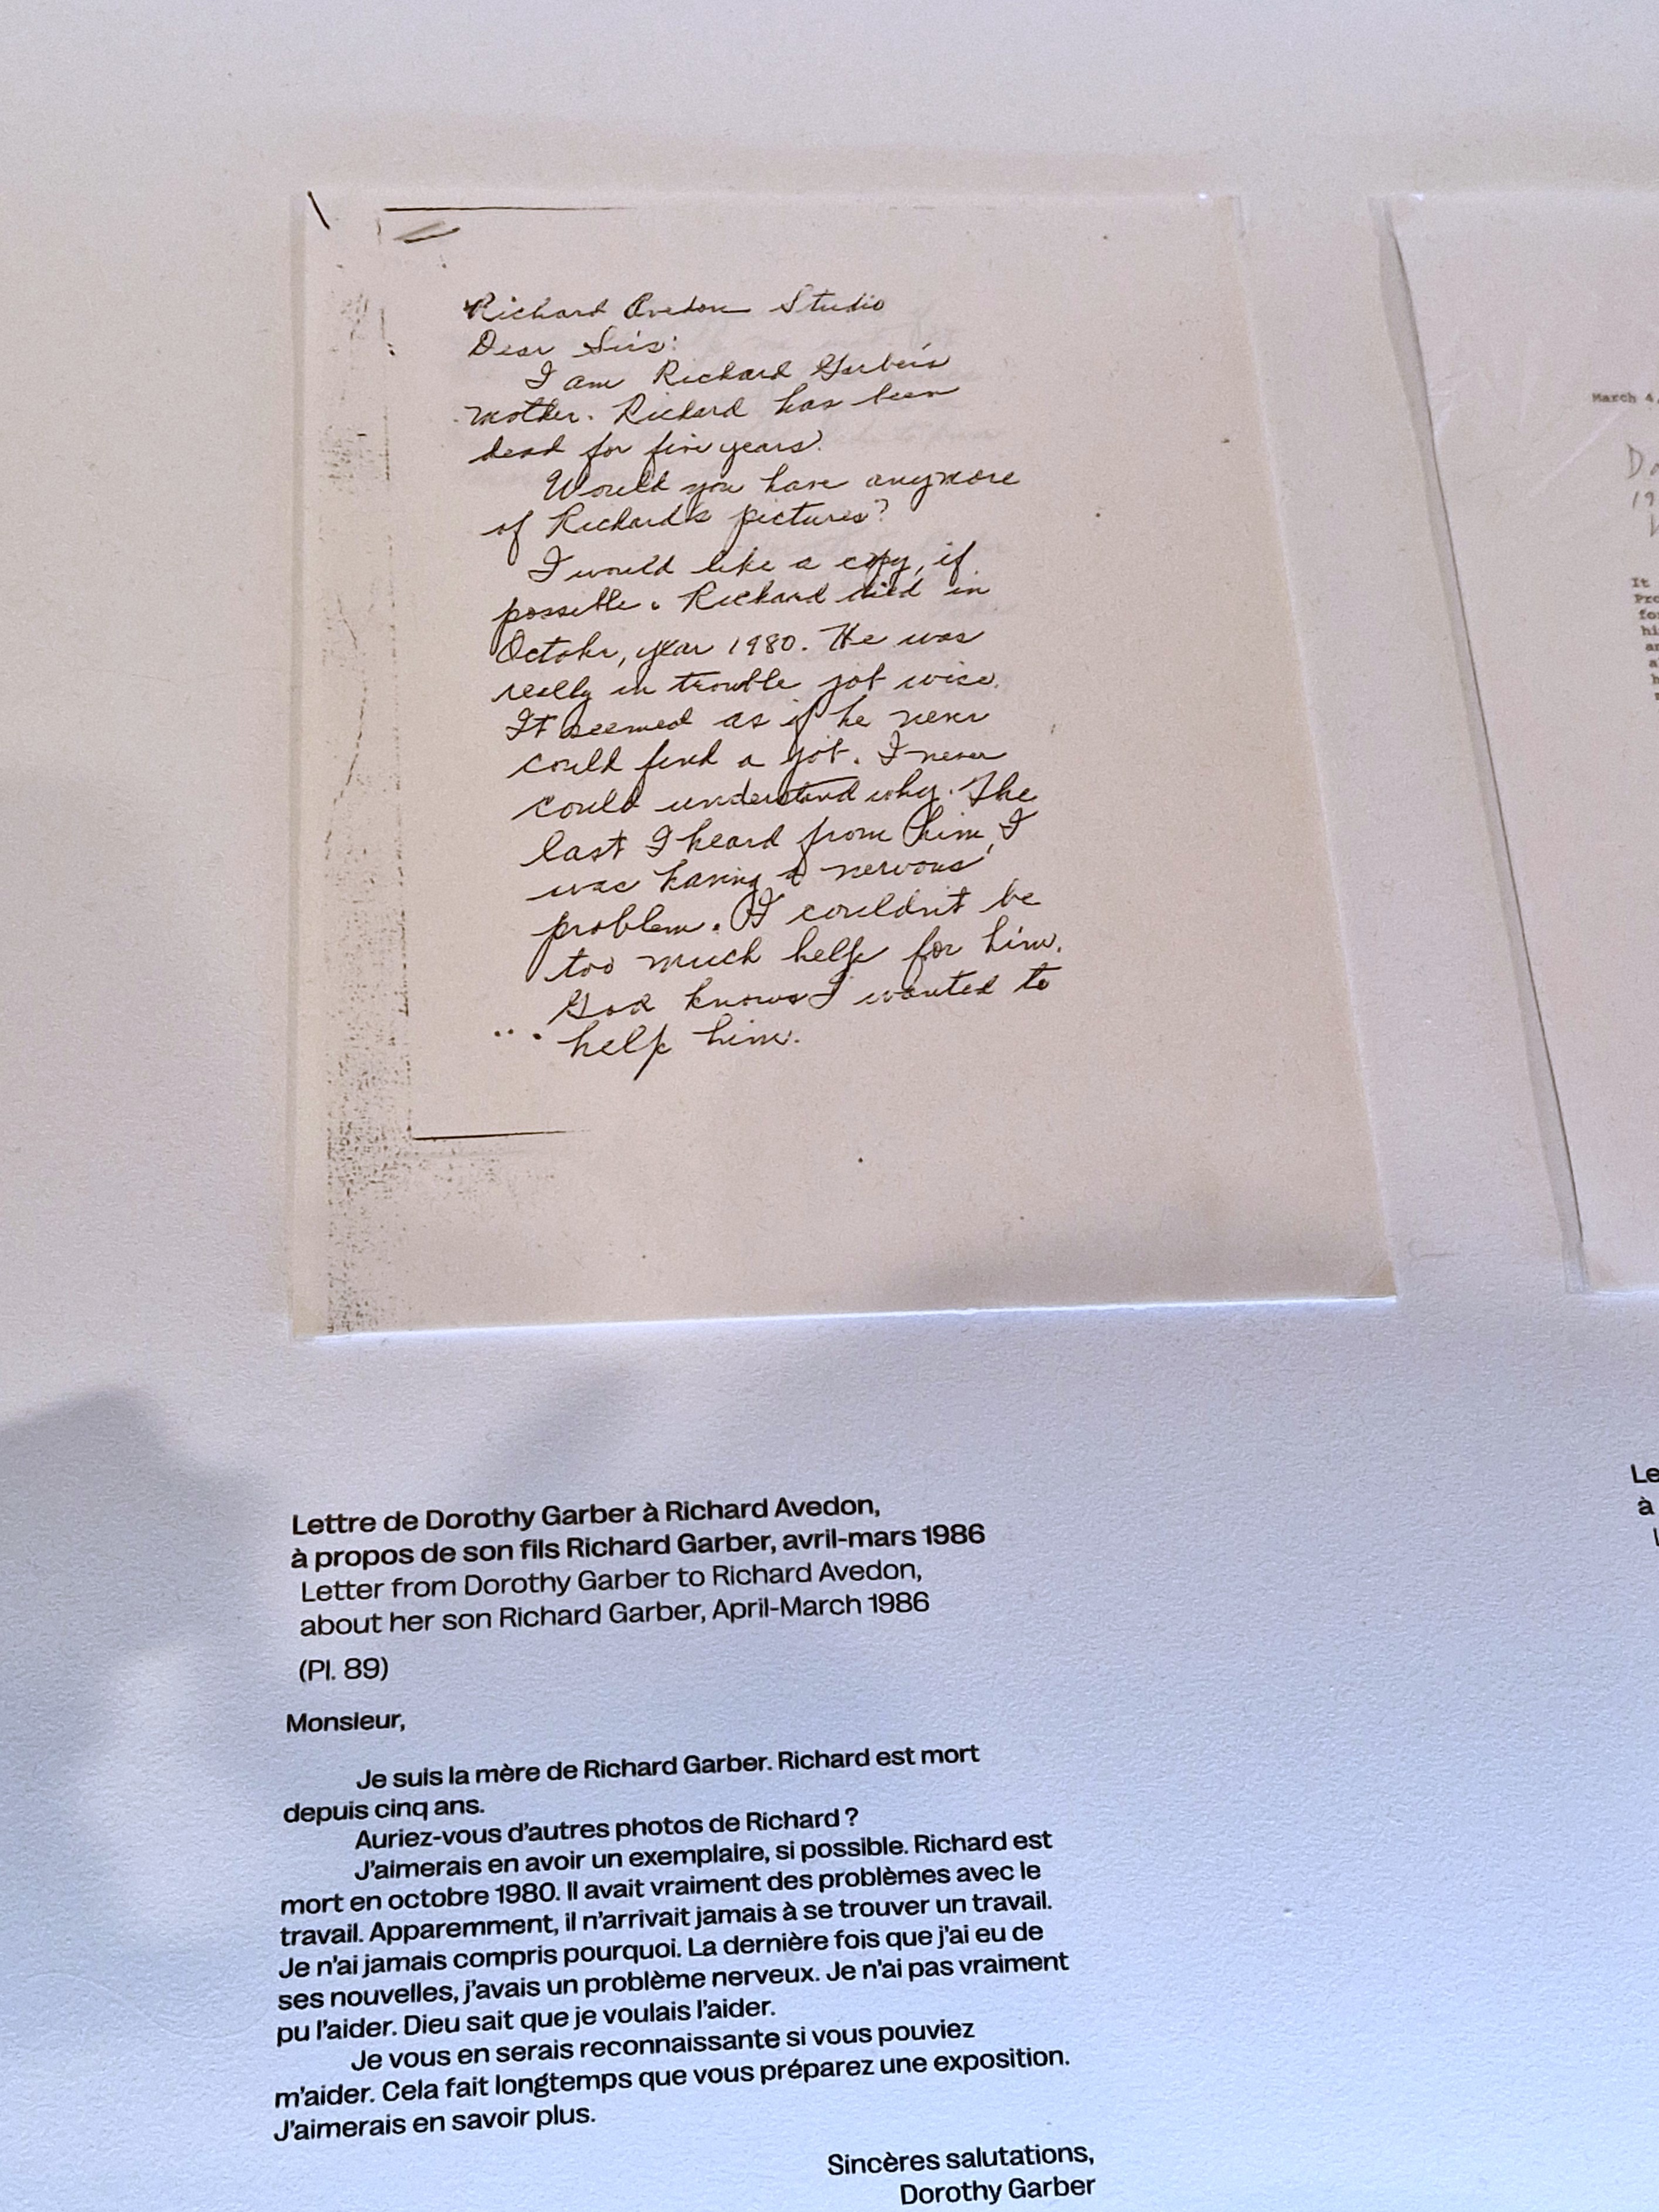 Richard Avedon Studio
Dear Sirs:
I am Richard Garber's
mother. Richard has been
dead for five years.
Would you have anymore
of Richard's pictures?
I would like a copy, if
possible. Richard died in
October, year 1980. He was
really in trouble job wise.
It seemed as if he never
could find a job. I never
could understand why. The
last I heard from him, I
was having a nervous
problem. I couldn't be
too much help for him.
God knows I wanted to
... help him.
March 4,
19
It
Pro
for
hi
an
a
h
Lettre de Dorothy Garber à Richard Avedon,
à propos de son fils Richard Garber, avril-mars 1986
Letter from Dorothy Garber to Richard Avedon,
about her son Richard Garber, April-March 1986
(Pl. 89)
Monsieur,
Je suis la mère de Richard Garber. Richard est mort
depuis cinq ans.
Auriez-vous d'autres photos de Richard ?
J'aimerais en avoir un exemplaire, si possible. Richard est
mort en octobre 1980. Il avait vraiment des problèmes avec le
travail. Apparemment, il n'arrivait jamais à se trouver un travail.
Je n'ai jamais compris pourquoi. La dernière fois que j'ai eu de
ses nouvelles, j'avais un problème nerveux. Je n'ai pas vraiment
pu l'aider. Dieu sait que je voulais l'aider.
Je vous en serais reconnaissante si vous pouviez
m'aider. Cela fait longtemps que vous préparez une exposition.
J'aimerais en savoir plus.
Sincères salutations,
Dorothy Garber
Le
à